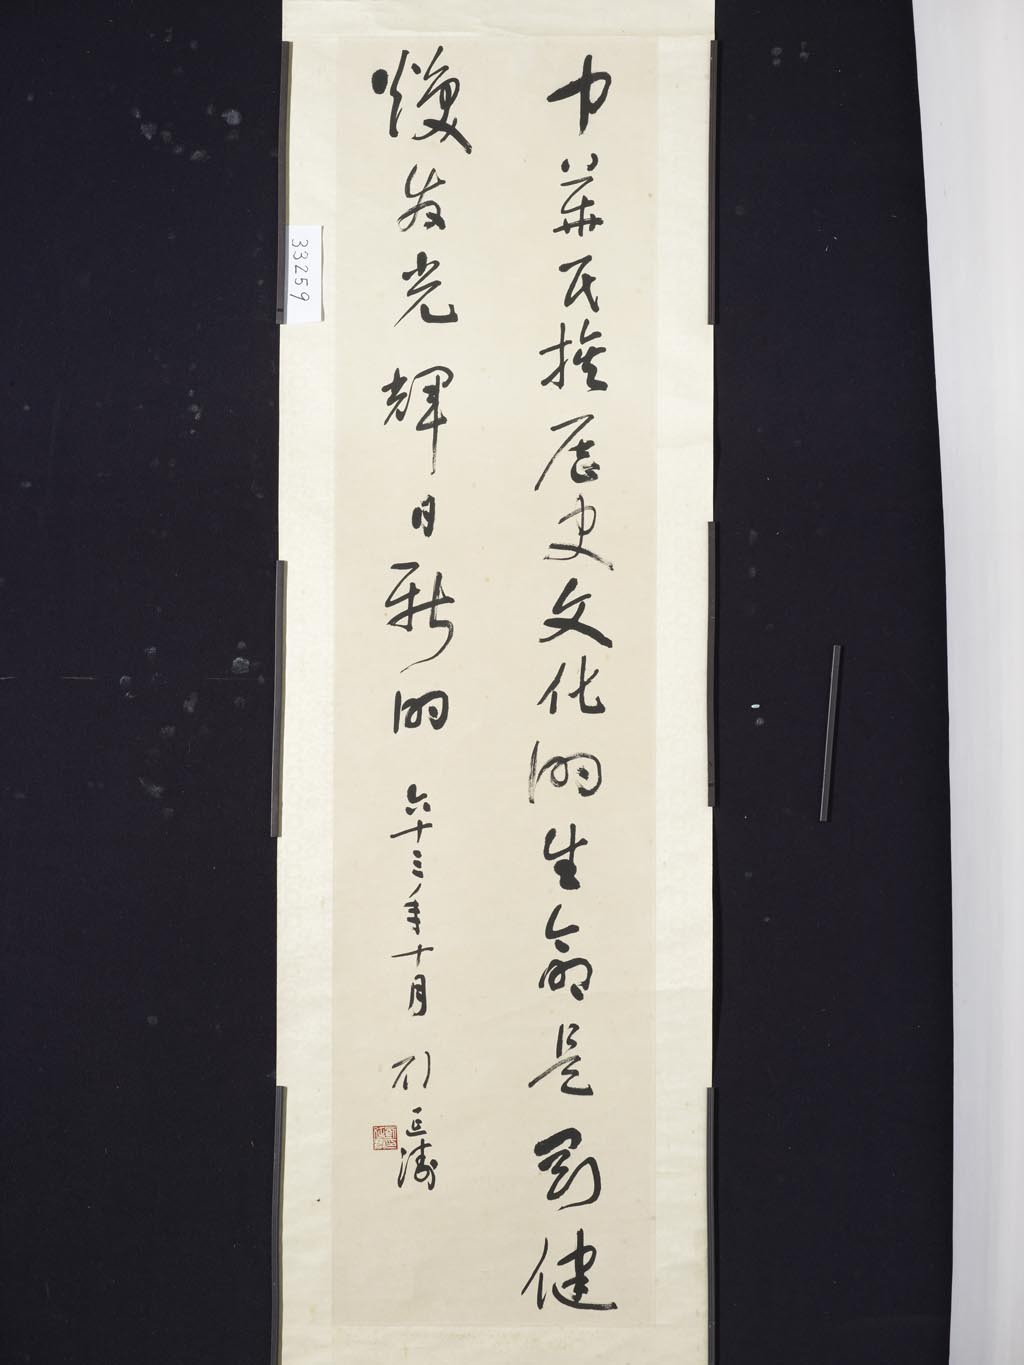 中華民族歷史文化的生命是剛健
煥发光輝日新的
六十三年十月 劉延濤
33259